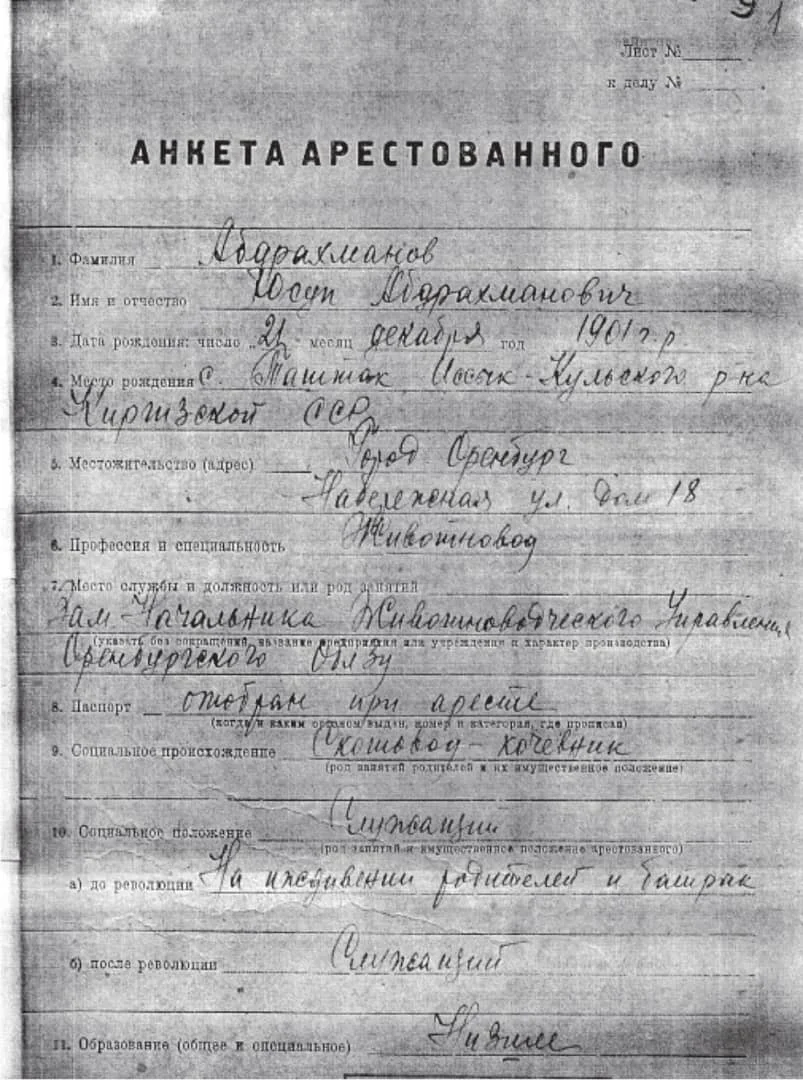 91
Лист №
к делу №
АНКЕТА АРЕСТОВАННОГО
1. Фамилия Абдрахманов
2. Имя и отчество Юсуп Абдрахманович
3. Дата рождения: число „21 месяц декабря год 1901 г.р
4. Место рождения с. Таштак Иссык-Кульского р-на
Киргизской ССР
5. Местожительство (адрес) Город Оренбург
Набережная ул. Дом 18
6. Профессия и специальность Животновод
7. Место службы и должность или род занятий
Зам. Начальника Животноводческого Управления
(указать без сокращений, название предприятия или учреждения и характер производства)
Оренбургского ОблЗУ
8. Паспорт отобран при аресте
(когда и каким органом выдан, номер и категория, где прописан)
9. Социальное происхождение Скотовод-кочевник
(род занятий родителей и их имущественное положение)
10. Социальное положение Служащий
(род занятий и имущественное положение арестованного)
а) до революции На иждивении родителей и батрак
б) после революции Служащий
11. Образование (общее и специальное) Низшее